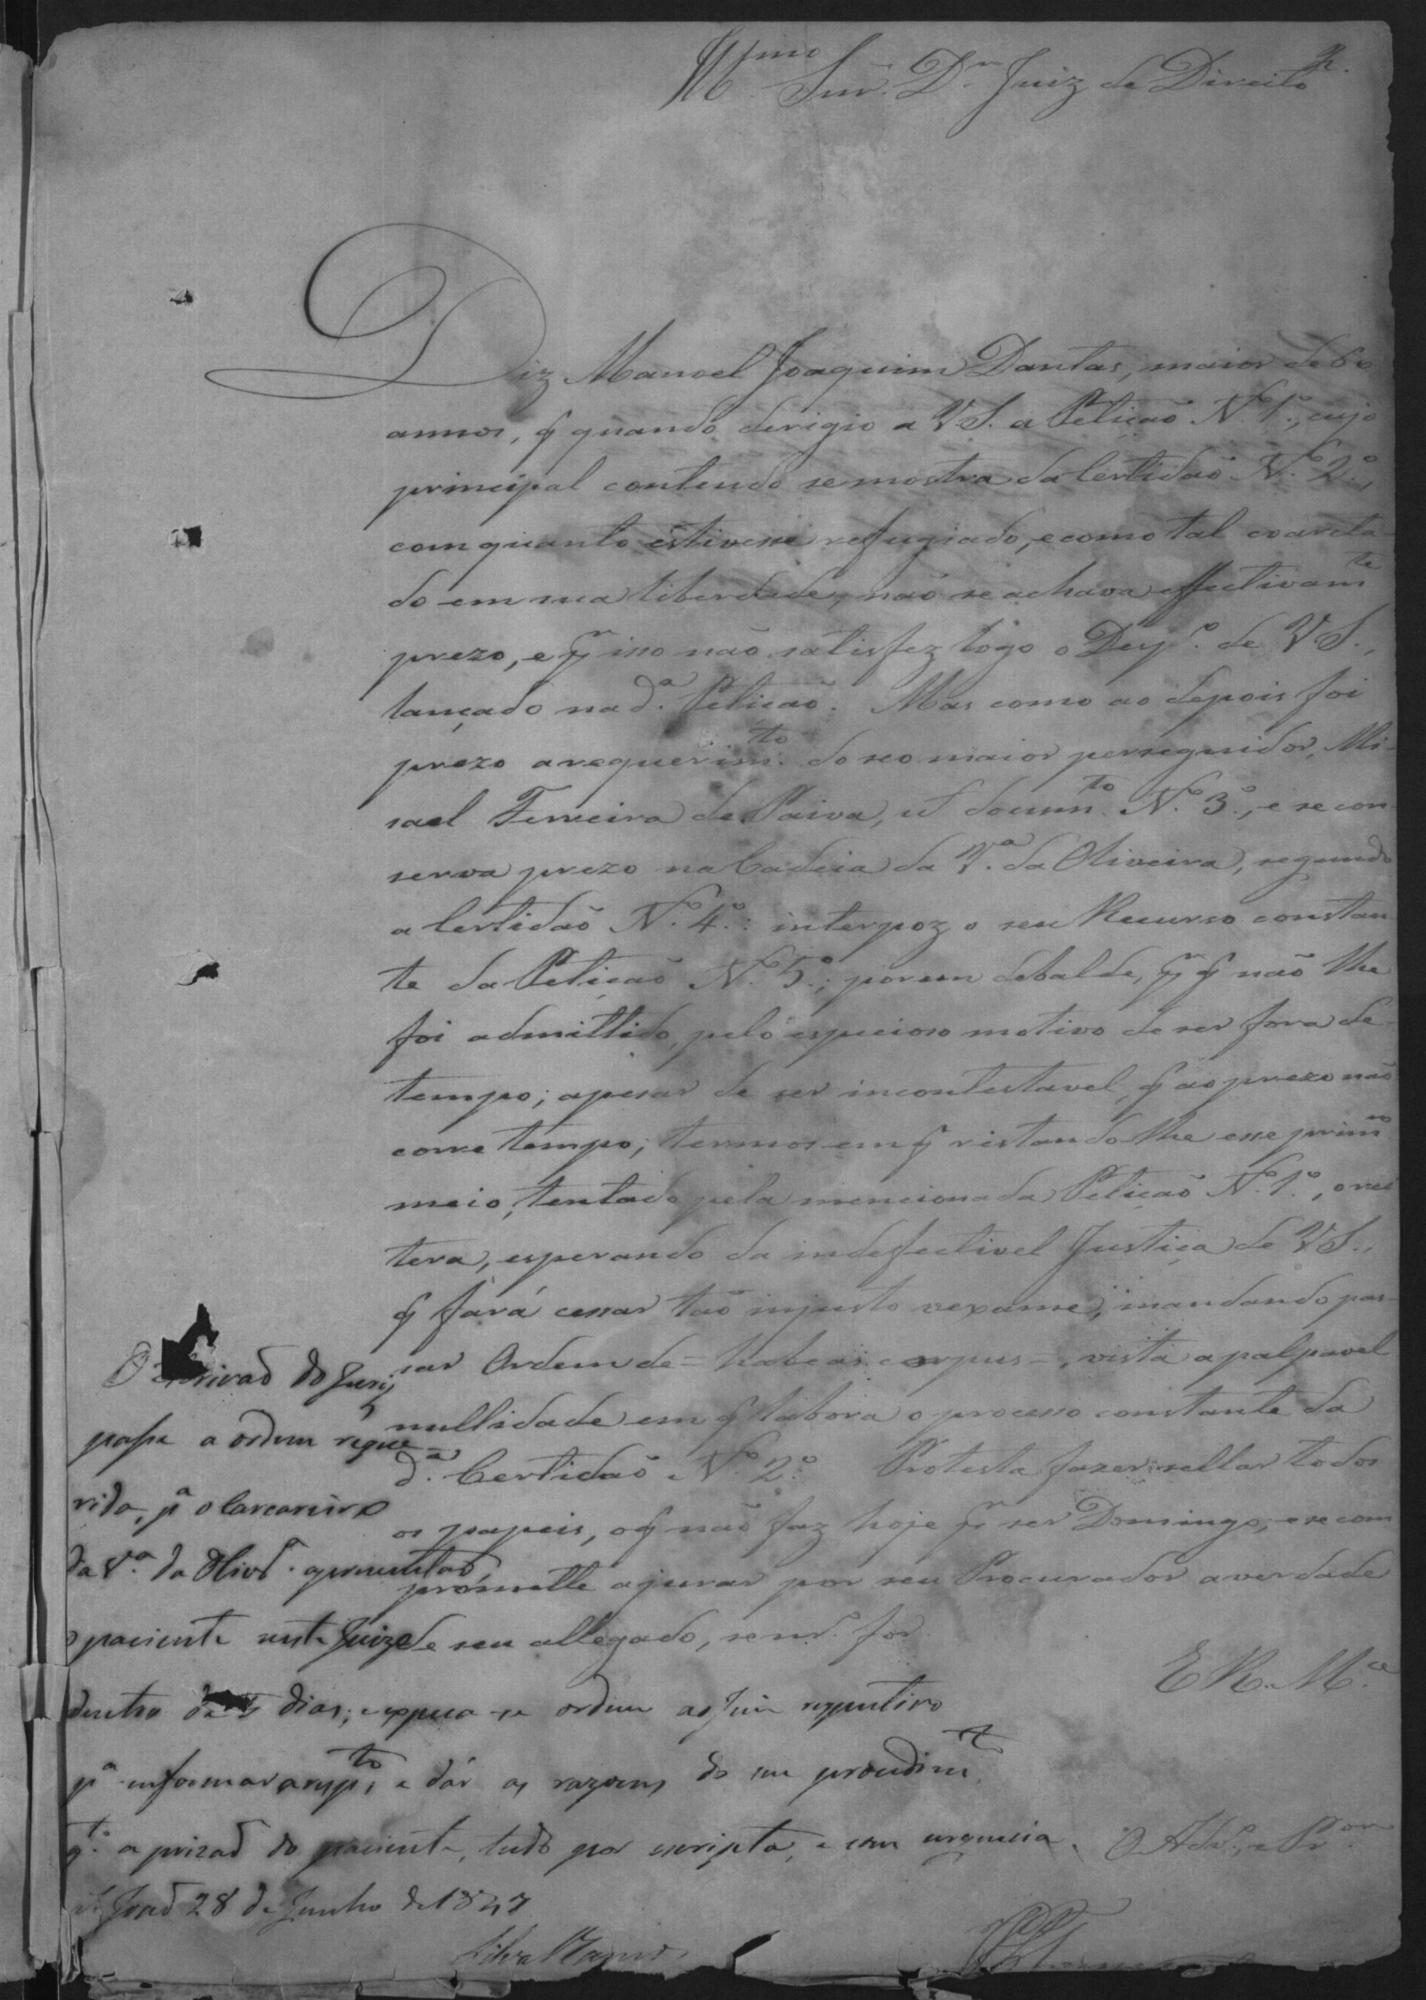 Illmo Snr. Dr. Juiz de Direito
2.
Diz Manoel Joaquim Dantas, maior de 60
annos, q̃ quando derigio a V.S. a Petição N.º 1.º, cujo
principal contendo se mostra da Certidão N.º 2.º,
comquanto estivesse refugiado, e como tal coarcta-
do em sua liberdade, não se achava effectivamte
prezo, e q̃ isso não satisfez logo o Desp.º de V.S.,
lançado na d.ª Petição. Mas como ao depois foi
prezo a requerimto do seo maior perseguidor, Mi-
sael Ferreira de Paiva, ut documto N.º 3.º, e se con-
serva prezo na Cadeia da V.ª da Oliveira, segundo
a Certidão N.º 4.º: interpoz o seu Recurso constan-
te da Petição N.º 5.º; porem debalde, pr q̃ não lhe
foi admittido, pelo especioso motivo de ser fora de
tempo; apesar de ser incontestavel, q̃ ao prezo não
corre tempo; termos em q̃ restando lhe esse primro
meio, tentado pela mencionada Petição N.º 1.º, o rei
tera, esperando da indefectivel Justiça de V.S.,
q̃ fará cessar tão injusto vexame, mandando pas-
sar Ordem de = habeas corpus =, vista a palpavel
nullidade em q̃ labora o processo constante da
d.ª Certidão N.º 2.º Protesta fazer sellar todos
os papeis, o q̃ não faz hoje pr ser Domingo, e se com
promette a jurar por seu Procurador a verdade
de seu allegado, se nr.º for.
E R. M.ce
O Adv.º e Pr.or
O Escrivaõ do Jury
passe a ordem reque
rida, pª o Carcereiro
da V.ª da Olivrª apresentar
o paciente neste Juizo
dentro de 5 dias; expeça-se ordem ao Juiz respectivo
pª informar a respto, e dár as razoens do seu procedimto
qto a prizaõ do paciente, tudo por escripto, e com urgencia.
S. Joaõ 28 de Junho de 1847
Silva Ramos